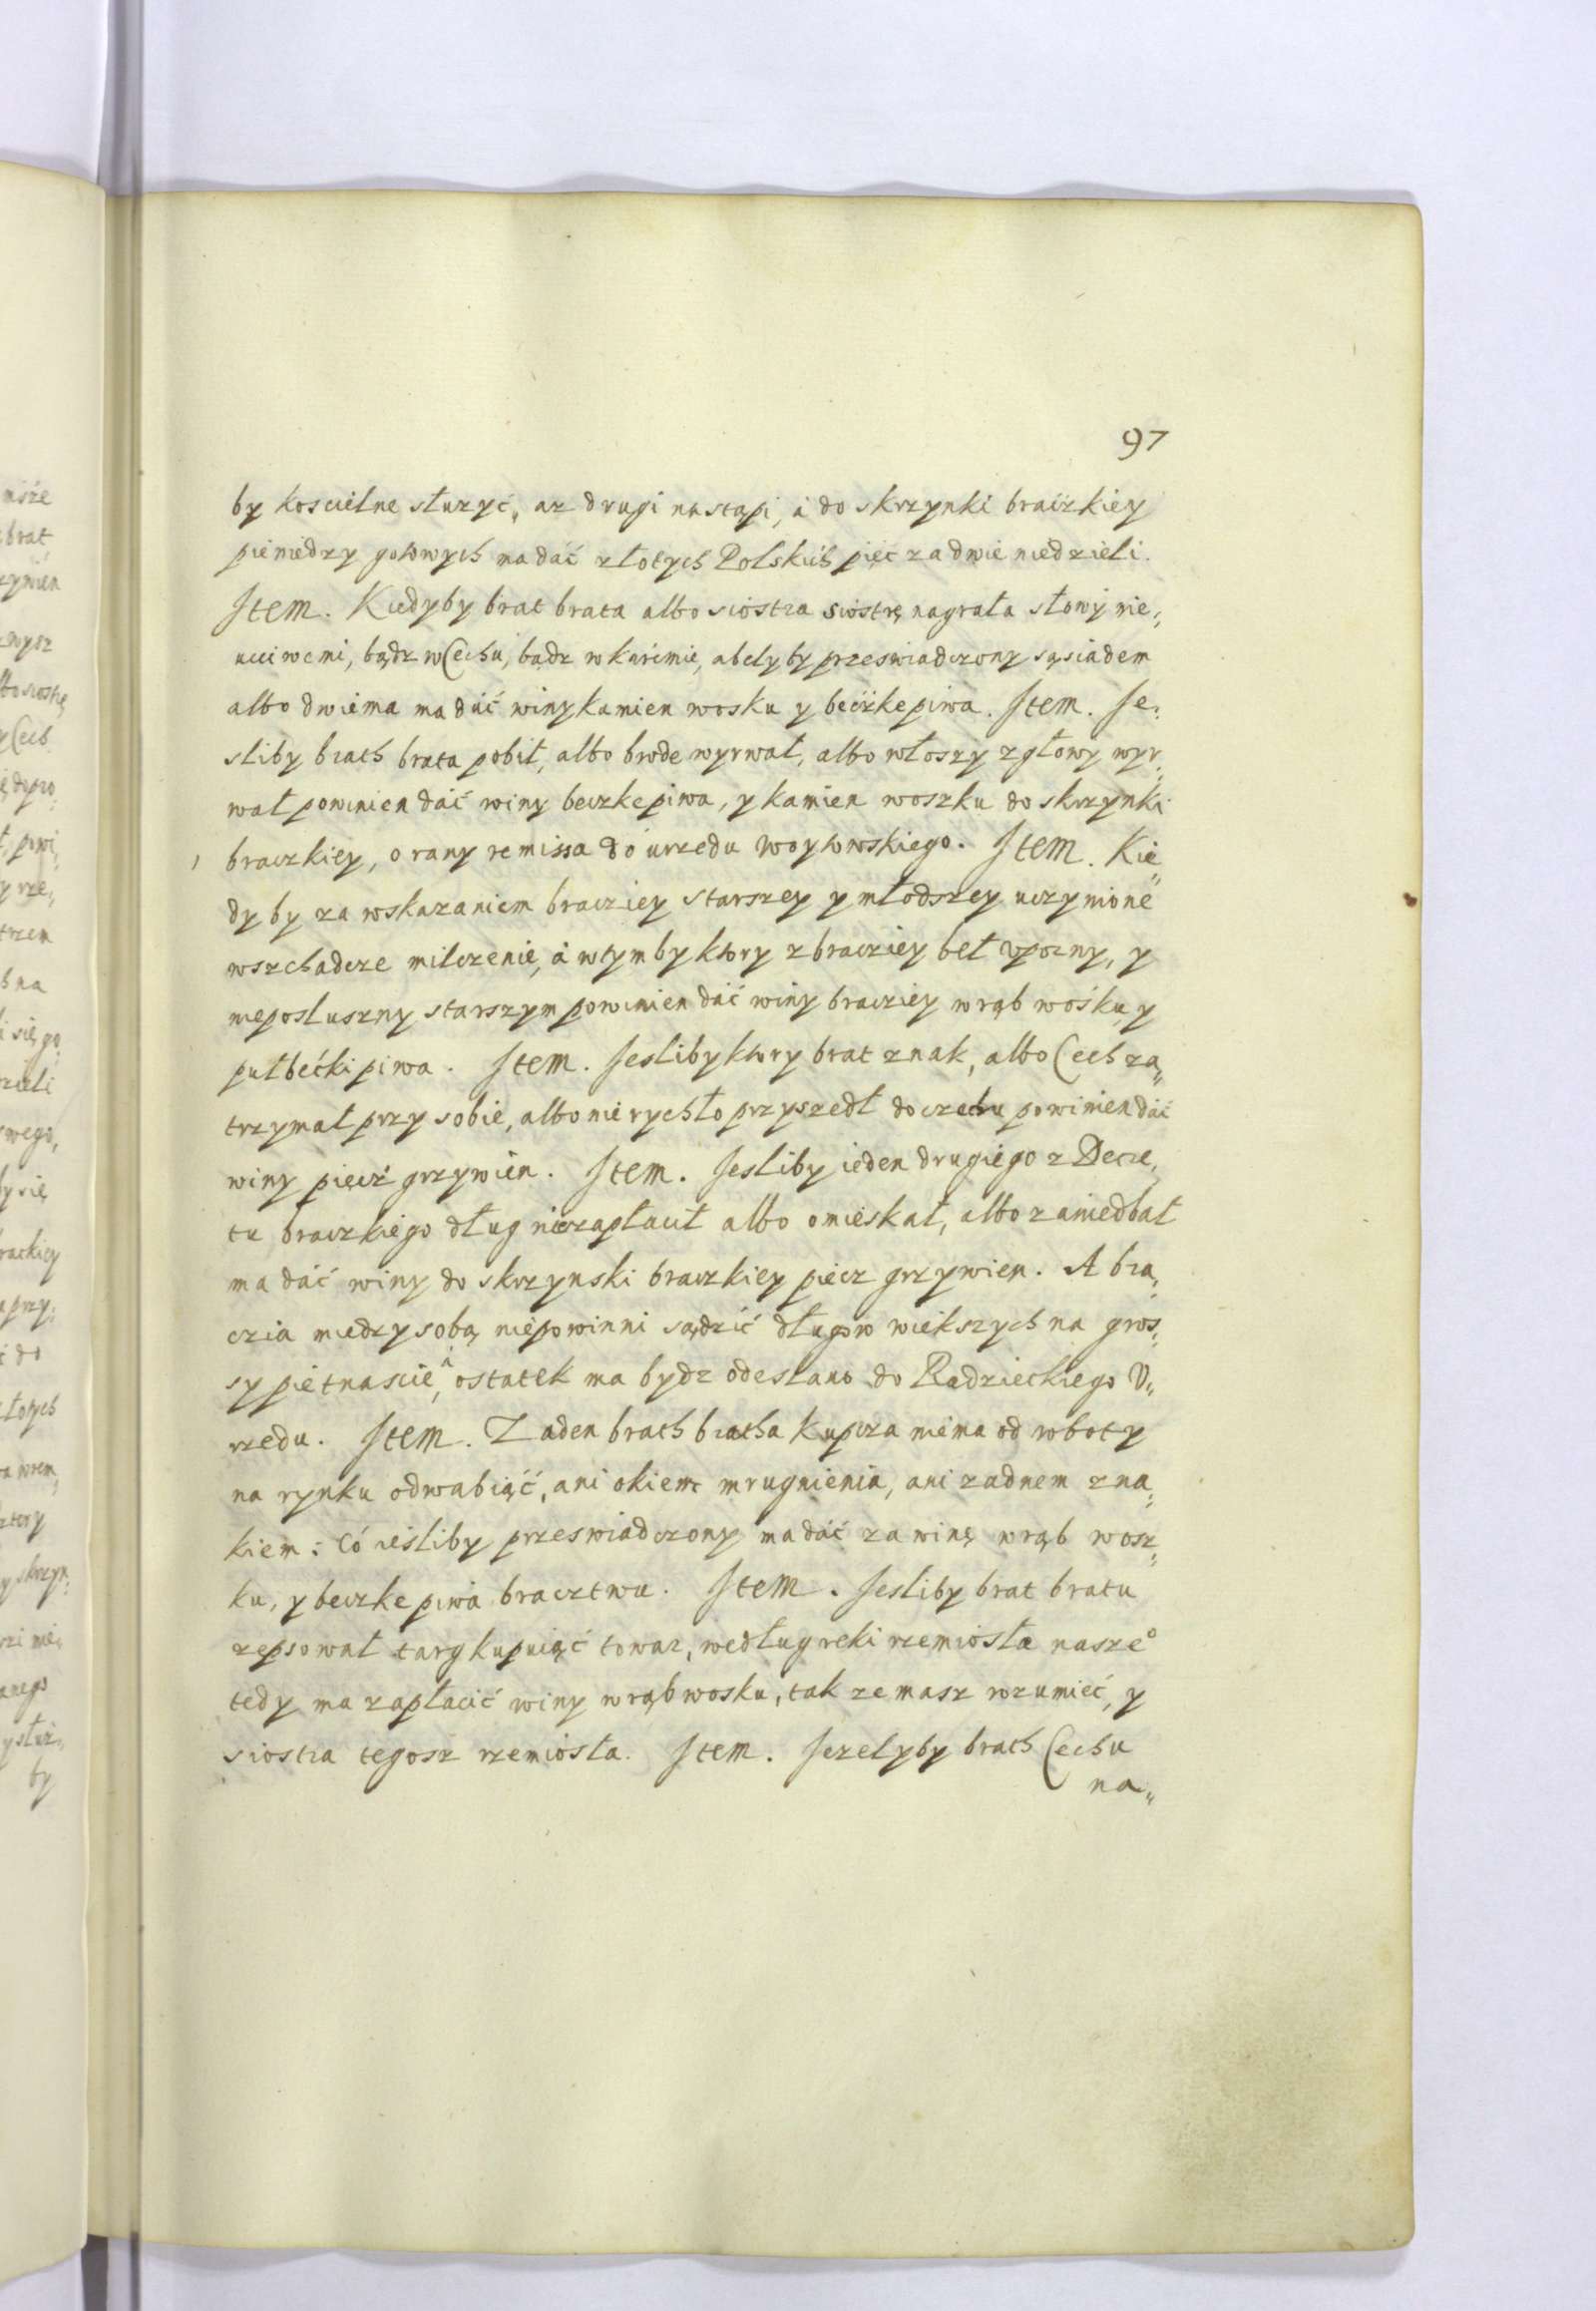 97
by koscielne służyć, az drugi nastąpi, á do skrzynki braczkiey
pieniedzy gotowych ma dać złotych Polskich pięć za dwie niedzieli.
Item. Kiedyby brat brata albo siostra siostrę nagrała słowy nie„
ucciwemi, bądz w Cechu, bądz w karćmie, abelyby przeswiadczony sąsiadem
albo dwiema ma dać winy kamien wosku y bećzke piwa. Item. Je„
sliby brath brata pobił, albo brode wyrwał, albo włoszy z głowy wyr„
wał powinien dać winy beczke piwa, y kamien woszku do skrzynki
braczkiey, o rany remissa do urzedu Woytowskiego. Item. Kie„
dyby za wskazaniem bracziey starszey y młodszey uczynione
wszchadcze milczenie, á wtym by ktory z bracziey beł vporny, y
nieposłuszny starszym powinien dać winy bracziey wrąb wosku, y
pułbećki piwa. Item. Jesliby ktory brat znak, albo Cech za„
trzymał przy sobie, albo nie rychło przyszedł do czechu powinien dać
winy piecz grzywien. Item. Jesliby ieden drugiego z Decre„
tu braczkiego dług niezapłacił albo omieskał, albo zaniedbał
ma dać winy do skrzynski braczkiey piecz grzywien. A bra„
czia miedzy sobą niepowinni sądzić długow wiekszych na gros„
sy pietnascie, â ostatek ma bydz odesłano do Radzieckiego V„
rzedu. Item. Zaden brath bratha kupcza niema od roboty
na rynku odwabiáć, ani okiem mrugnienia, ani zadnem zna„
kiem: Có iesliby przeswiadczony ma dać za winę wrąb wosz„
ku, y beczke piwa bracztwu. Item. Jesliby brat bratu
zepsował targ kupuiąć towar, według reki rzemiosła nasze°
tedy ma zapłacić winy wrąb wosku, tak ze masz rozumieć, y
siostra tegosz rzemiosła. Item. Jezelyby brath Cechu
na„